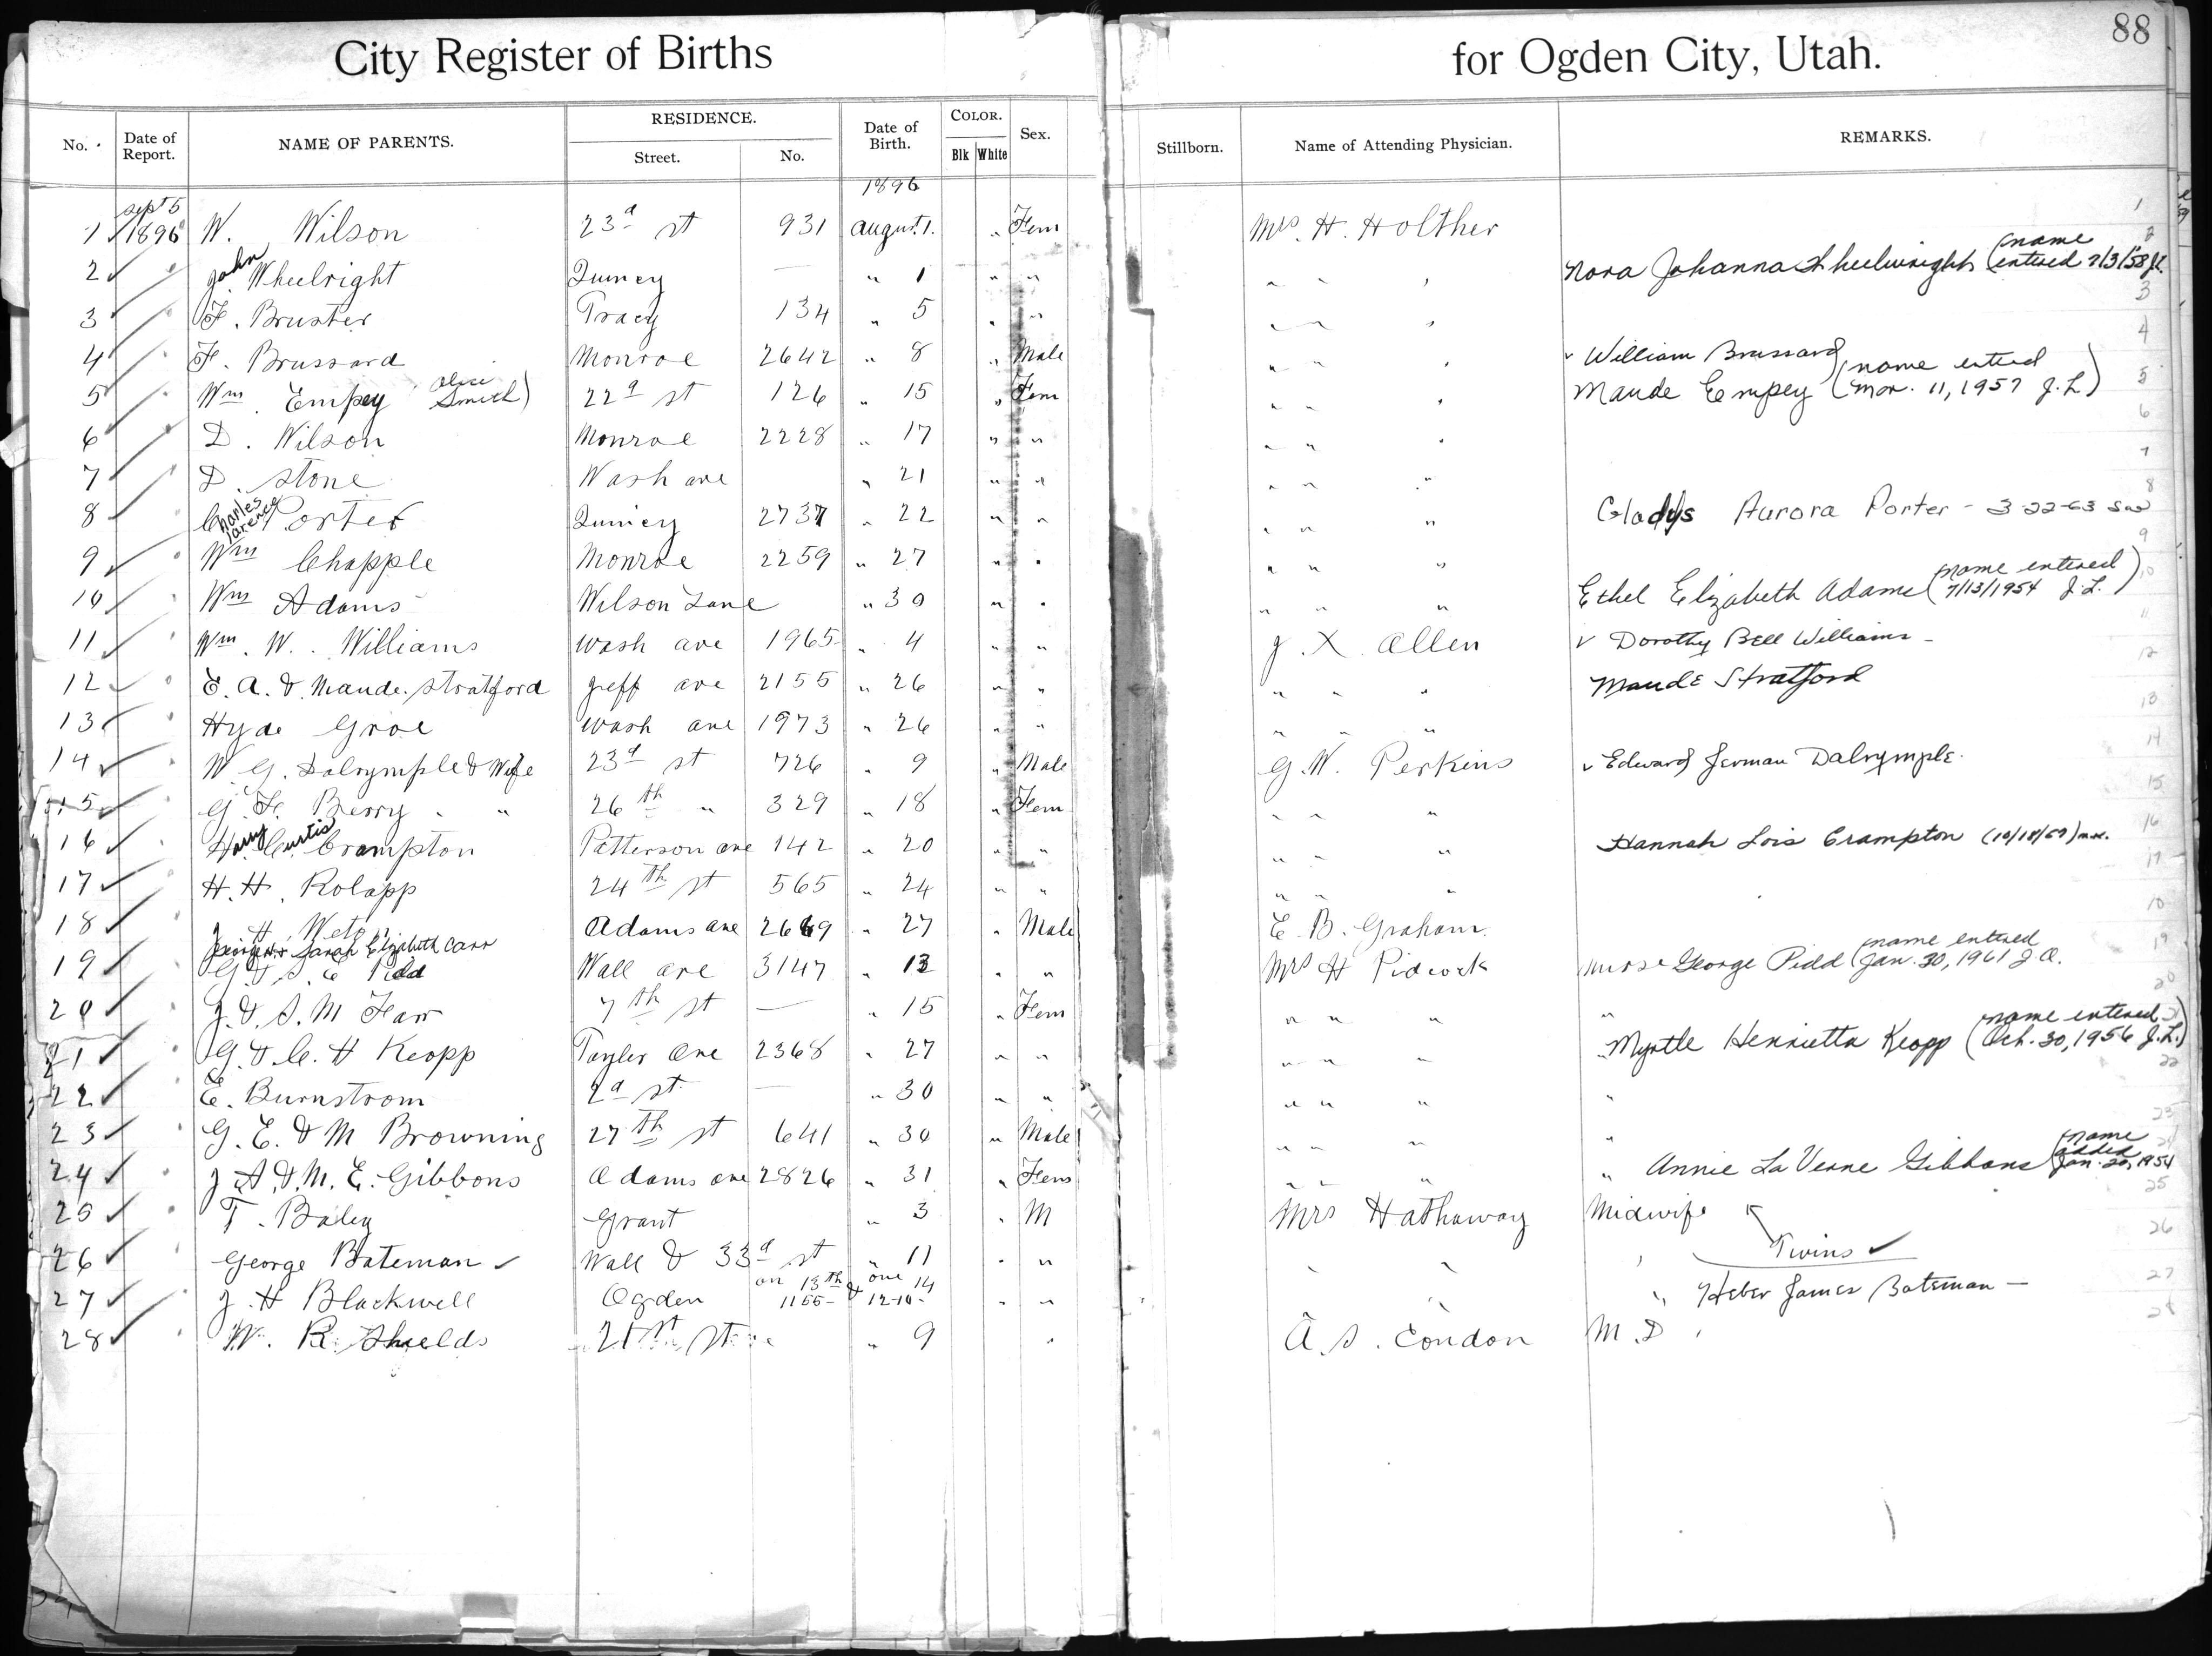 City Register of Births for Ogden City, Utah. 88
No. Date of Report. NAME OF PARENTS. RESIDENCE. Street. No. Date of Birth. COLOR. Blk White Sex. Stillborn. Name of Attending Physician. REMARKS.
1896
1 Sept 5 1896 W. Wilson 23d st 931 August 1. " Fem Mrs. H. Holther 1
2 John Wheelright Quincy — " 1 " " " " " Nora Johanna Wheelwright (name entered 2
3 F. Bruster Tracy 134 " 5 " " " " " 3
4 F. Brussard Monroe 2642 " 8 " Male " " " William Brussard 4
5 Wm Empey Alice Smith) 22d st 126 " 15 " Fem " " " Maude Empey (name entered Mar. 11, 1957 J.L.) 5
6 D. Wilson Monroe 2228 " 17 " " " " " 6
7 D. Stone Wash ave " 21 " " " " " 7
8 Charles Clarence Porter Quincy 2737 " 22 " " " " " Gladys Aurora Porter - 3-22-63 8
9 Wm Chapple Monroe 2259 " 27 " " " " " 9
10 Wm Adams Wilson Lane " 30 " " " " " Ethel Elizabeth Adams (name entered 7/13/1954 J.L.) 10
11 Wm. W. Williams Wash ave 1965 " 4 " " J. X. Allen Dorothy Bell Williams - 11
12 E. A. & Maude Stratford Jeff ave 2155 " 26 " " " " " Maude Stratford 12
13 Hyde Groe Wash ave 1973 " 26 " " " " " 13
14 W. G. Dalrymple & Wife 23d st 726 " 9 " Male G. W. Perkins Edward Jerman Dalrymple. 14
15 G. F. Berry " " 26th " 329 " 18 " Fem " " " 15
16 Harry Curtis Crampton Patterson ave 142 " 20 " " " " " Hannah Lois Crampton 16
17 H. H. Rolapp 24th st 565 " 24 " " " " " 17
18 J. H. Adams ave " 27 " Male E. B. Graham 18
19 Sarah Elizabeth Carr Pidd Wall ave 3147 " 13 " " Mrs H Pidcock nurse George Pidd (name entered Jan. 30, 1961 J.O. 19
20 J. & S. M Farr 7th st — " 15 " Fem " " " " 20
21 G. & C. H Keopp Tayler ave 2368 " 27 " " " " " " Myrtle Henrietta Keopp (name entered Oct. 30, 1956 J.L.) 21
22 E. Burnstrom 2d st — " 30 " " " " " " 22
23 G. E. & M Browning 27th st 641 " 30 " Male " " " " 23
24 J. A. & M. E. Gibbons Adams ave 2826 " 31 " Fem " " " " Annie La Verne Gibbons (name added Jan. 1954 24
25 T. Baley Grant " 3 " M Mrs Hathaway Midwife 25
26 George Bateman Wall & 33d st " 11 " " " " " Twins 26
27 J. H Blackwell Ogden on 13th & one 14 1155- 12-10- " " " " Heber James Bateman — 27
28 W. R. Shields 21st st " 9 " A. S. Condon M. D 28